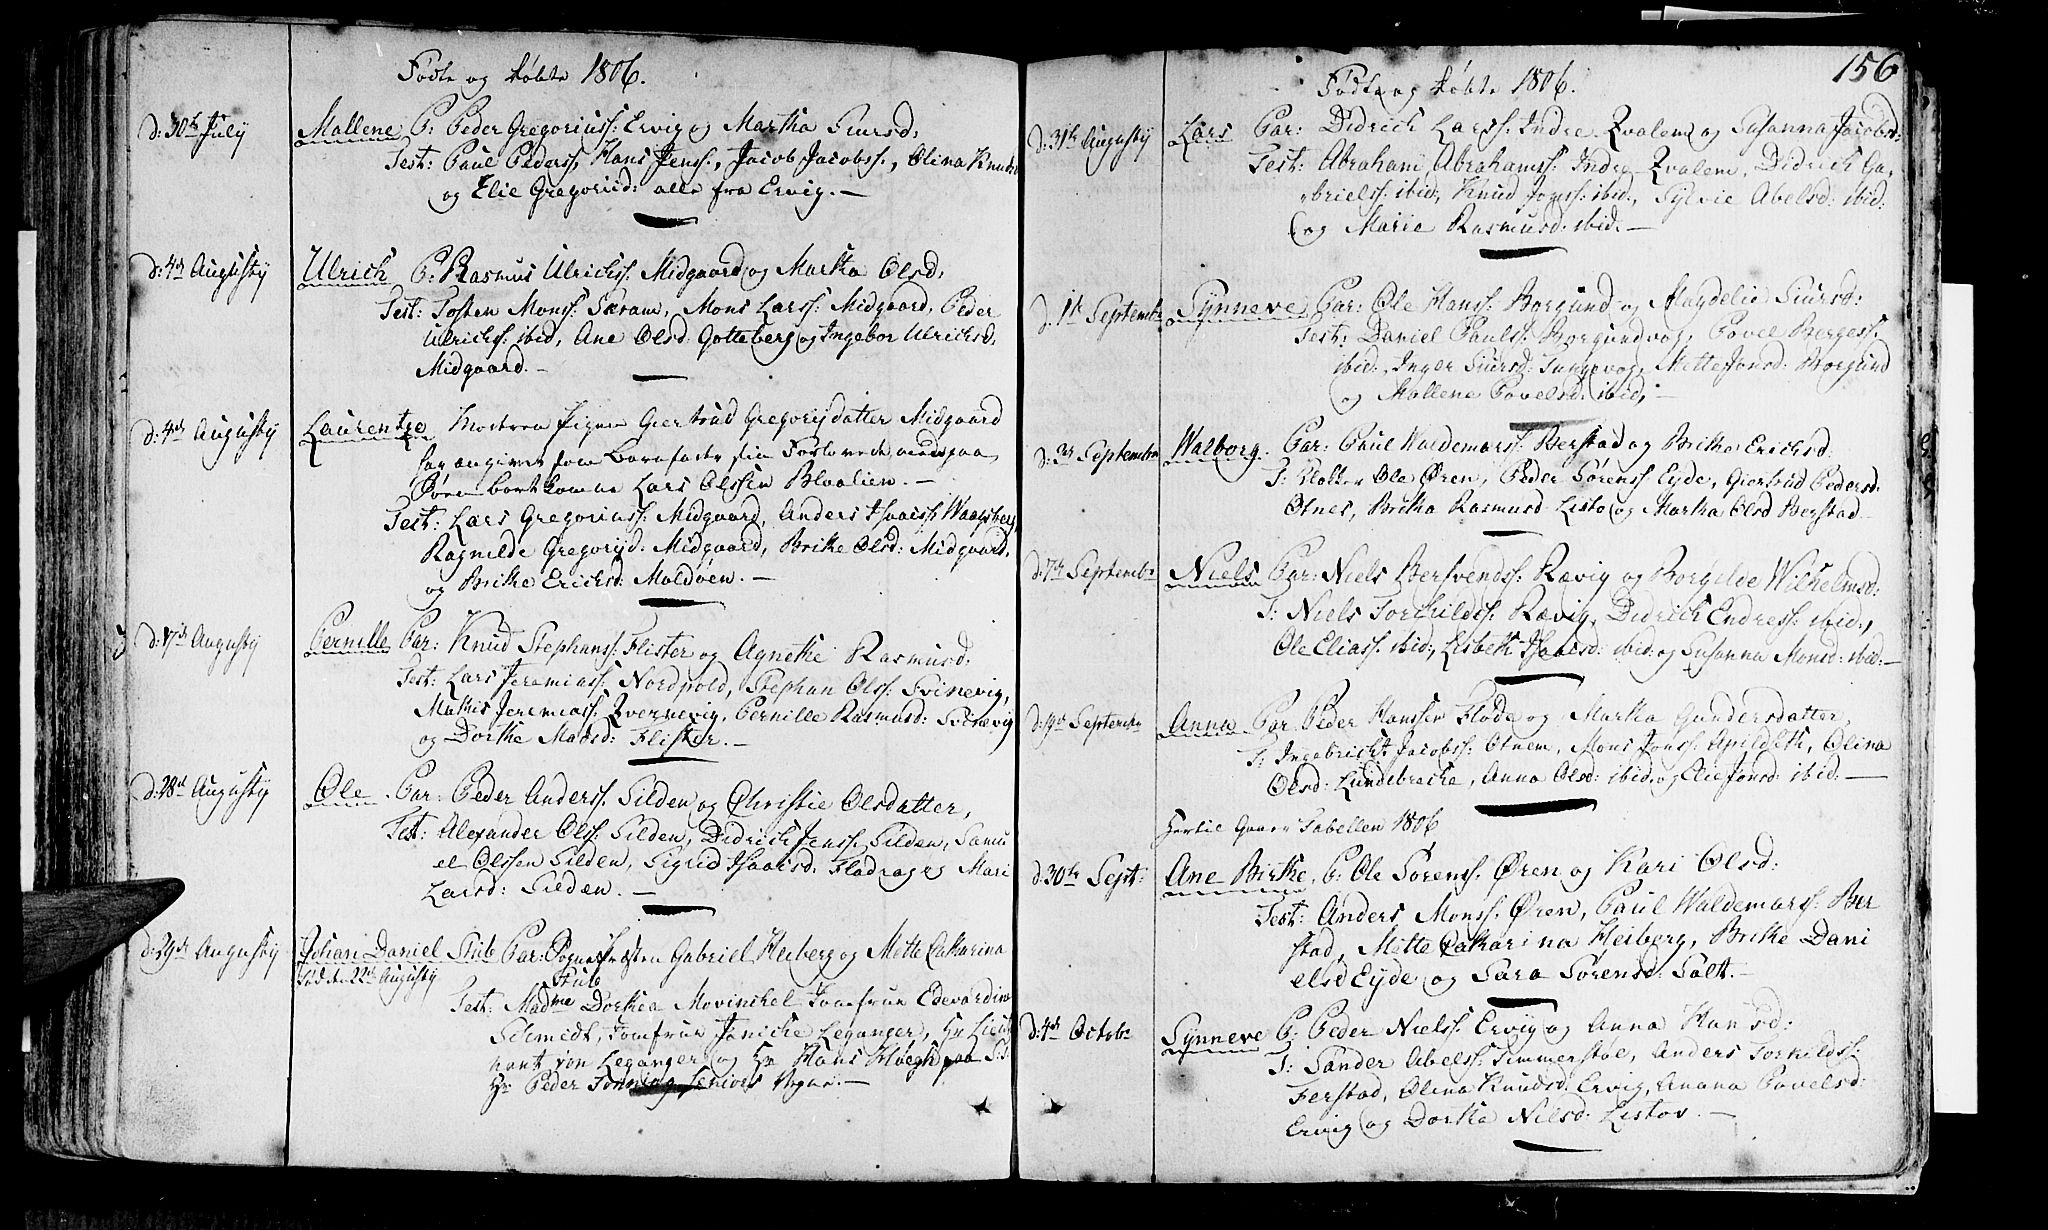 Födte og döbte 1806.
d: 30te July Mallene P: Peder Gregoriuss: Ervig og Martha Siursd:
Test: Paul Peders: Hans Jenss:, Jacob Jacobss:, Olina Knuds:
og Elie Gregoriid: alle fra Ervig. —
d: 4de Augusty Ulrich P: Rasmus Ulrichss: Midgaard og Martha Olsd.
Test: Tosten Monss: Skram, Mons Larss: Midgaard, Peder
Ulrichss: ibid, Ane Olsd: Gotteberg og Ingebor Ulrichsd:
Midgaard. —
d: 4de Augusty Laurentze Moderen Pigen Giertrud Gregorydatter Midgaard
har angivet som Barnefader sin Forlovede
bortkomne Lars Olssen Blaalien. —
Test: Lars Gregoriuss: Midgaard, Anders Isaacs: Waagsberg,
Ragnilde Gregoryd: Midgaard, Brithe Olsd: Midgaard,
og Brithe Erichsd: Moldöen. —
d: 17de Augusty Pernille Par: Knud Stephanss: Flister og Agnethe Rasmusd:
Test: Lars Jeremiass: Nordpold, Stephan Olss: Svinevig,
Mathis Jeremiass: Qvernevig, Pernille Rasmusd: Svinevig
og Dorthe Madsd: Flister. —
d: 28de Augusty Ole. Par: Peder Anderss. Silden og Christie Olsdatter,
Test: Alexander Olss: Silden, Didrich Jenss: Silden, Samu
el Olssen Silden, Sigrid Isaacsd. Fladrage og Mari
Larsd: Silden. —
d: 29de Augusty Johan Daniel Stub Par: Sognepræsten Gabriel Heiberg og Mette Catharina
Föd den 22de Augusty Stub
Test: Madme Dorthea Movinckel, Jomfrue Edevardine
Schmidt, Jomfrue Janiche Leganger, Hr Lieut
nant von Leganger og Hr Hans Höegh paa
Hr Peder Tönning Seniors Vegne. —
156
Födte og döbte 1806.
d: 31te Augusty Lars Par: Didrich Larss: Indre Qvalem og Susanna Jacobsd:
Test: Abraham Abrahamss: Indre Qvalem, Didrich Ga,
brielss: ibid:, Knud Jonss: ibid:, Sylvie Abelsd: ibid:
og Marie Rasmusd: ibid. —
d: 1te Septembr Synneve Par: Ole Hanss: Borgund og Magdelie Siursd:
Test: Daniel Paulss: Borgundvog, Povel Bergess:
ibid:, Inger Siursd: Tungevog, Mette Jonsd: Borgund
og Mallene Povelsd: ibid: —
d: 3de Septembr Walborg. Par: Paul Waldemarss: Berstad og Brithe Erichsd:
T: Klokker Ole Ören, Peder Sörenss: Eyde, Giertrud Pedersd:
Otnes, Britha Rasmusd Listo og Martha Olsd Berstad
d: 7de Septembr Niels Par: Niels Bersvendss: Rævig og Borgilde Wilhelmsd:
T: Niels Torkildss: Rævig, Didrich Endress: ibid:,
Ole Eliass: ibid:, Lisbeth Isaacsd: ibid: og Susanna Monsd: ibid: —
d: 9de Septembr Anna Par: Peder Hanssen Flode og Martha Gundersdatter,
T: Ingebricht Jacobss: Otnem, Mons Jonss: Apildeth, Olina
Olsd: Lundebrecke, Anna Olsd: ibid: og Elie Jonsd: ibid: —
Hertil Gaaer Tabellen 1806
d: 30te Sept: Ane Birthe P: Ole Sörenss: Ören og Kari Olsd:
Test: Anders Monss: Ören, Paul Waldemarss: Ber
stad, Mette Catharina Heiberg, Brithe Dani
elsd Eyde og Sara Sörensd: Salt. —
d: 4de Octobr Synneve P: Peder Nielss: Ervig og Anna Hansd:
T: Sander Abelss: Timmerstöe, Anders Torkildss:
Ferstad, Olina Knudsd: Ervig, Anna Povelsd:
Ervig og Dorthe Nielsd: Listov. —